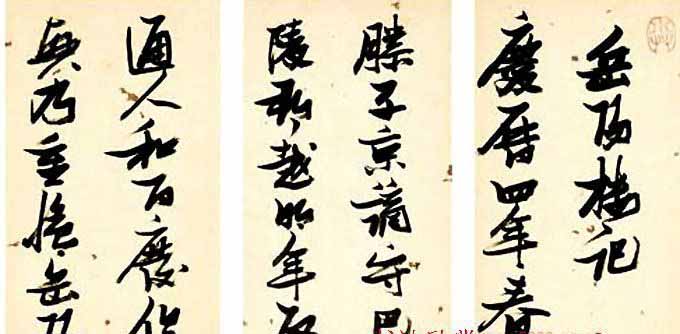 岳陽樓記
慶曆四年春
滕子京謫守巴
陵郡越明年政
通人和百廢俱
興乃重修岳